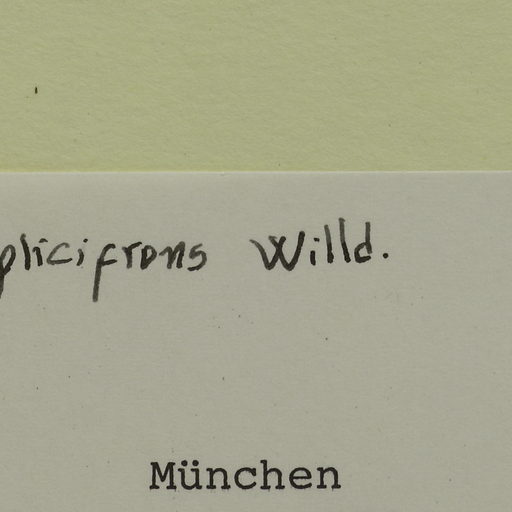 plicifrons Willd.
München